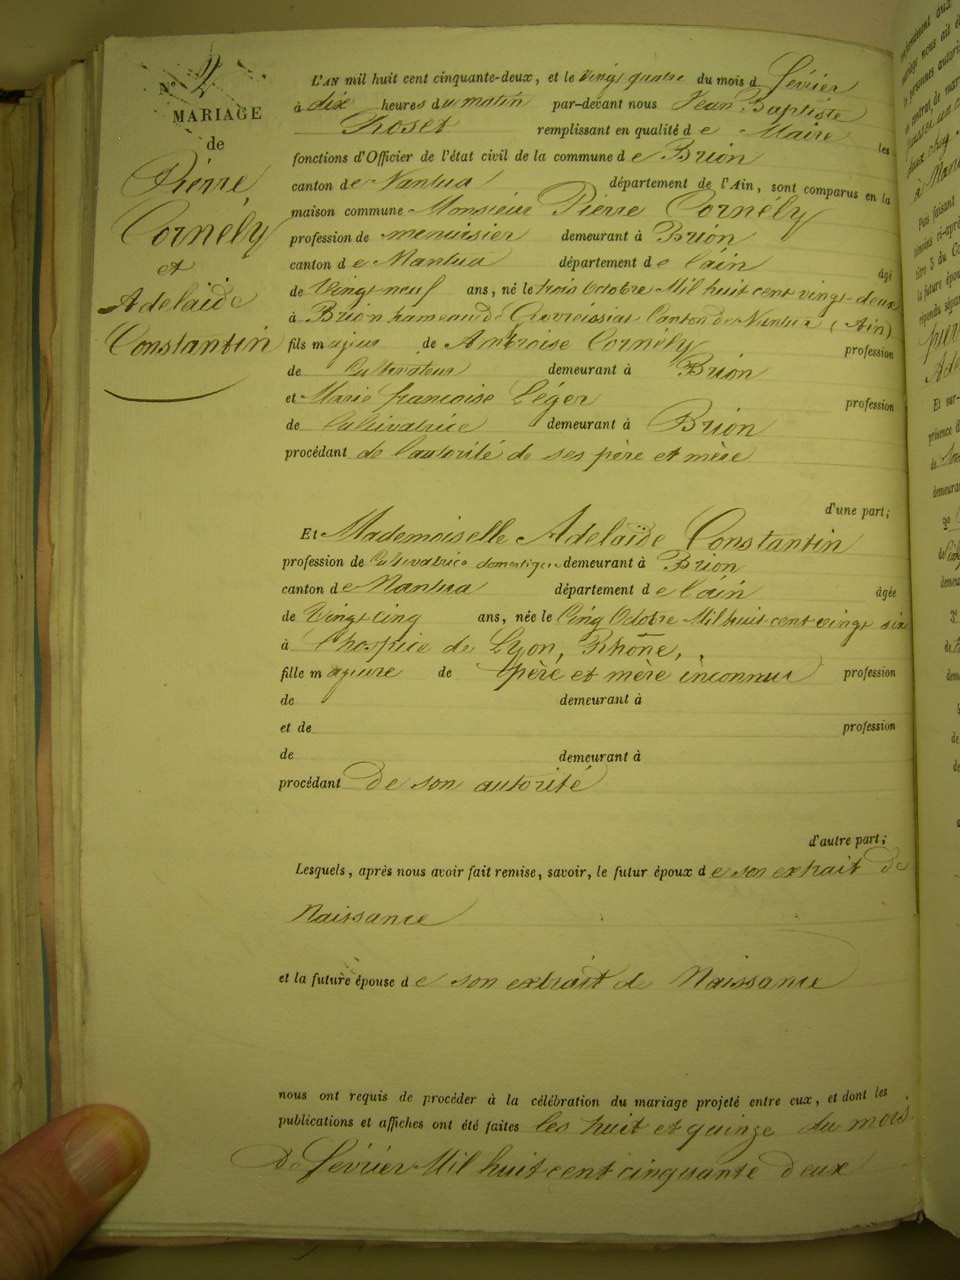 N° 2
MARIAGE
de
Pierre
Cornély
et
Adelaide
Constantin
L'AN mil huit cent cinquante-deux, et le vingt quatre du mois d Février
à dix heures du matin par-devant nous Jean Baptiste
remplissant en qualité de Maire les
fonctions d'Officier de l'état civil de la commune de Brion
canton de Nantua département de l'Ain, sont comparus en la
maison commune Monsieur Pierre Cornély
profession de menuisier demeurant à Brion
canton de Nantua département de l'ain âgé
de Vingt-neuf ans, né le trois Octobre Mil huit cent vingt-deux
à Brion hameau de Canton de Nantua (Ain)
fils majeur de Ambroise Cornély profession
de Cultivateur demeurant à Brion
et Marie francoise Léger profession
de Cultivatrice demeurant à Brion
procédant de l'autorité de ses père et mère
d'une part;
Et Mademoiselle Adelaïde Constantin
profession de Cultivatrice domestique demeurant à Brion
canton de Nantua département de l'ain âgée
de Vingt cinq ans, née le Cinq Octobre Mil huit cent vingt six
à l'hospice de Lyon, Rhône,
fille majeure de père et mère inconnus profession
de demeurant à
et de profession
de demeurant à
procédant De son autorité
d'autre part;
Lesquels, après nous avoir fait remise, savoir, le futur époux de son extrait de
Naissance
et la future épouse de son extrait de Naissance
nous ont requis de procéder à la célébration du mariage projeté entre eux, et dont les
publications et affiches ont été faites les huit et quinze du mois
De Février Mil huit cent cinquante deux